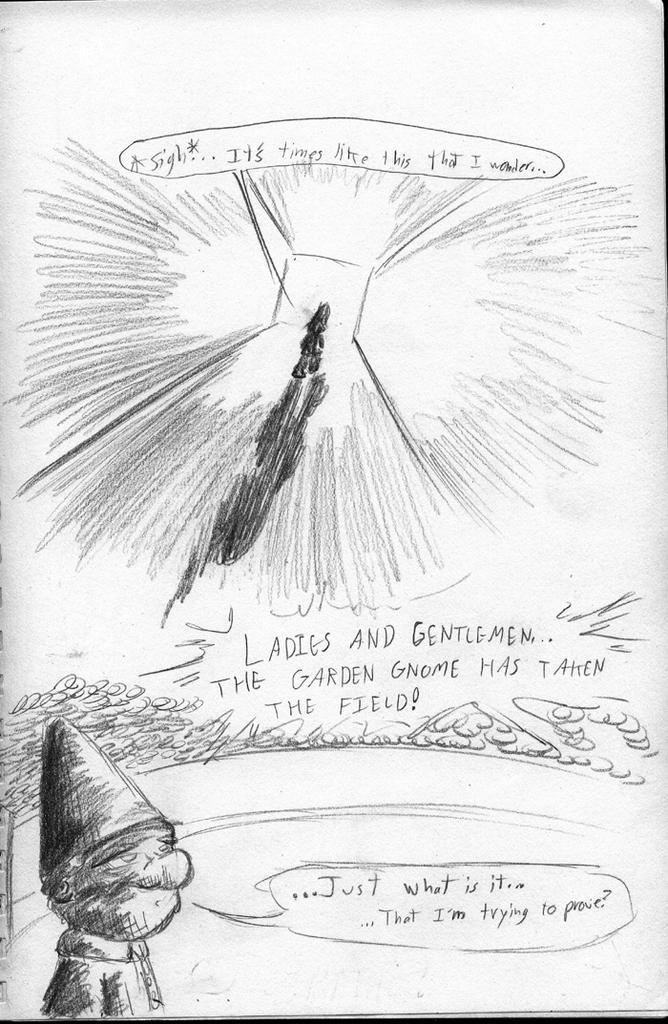 *sigh*... It's times like this that I wonder...
LADIES AND GENTLEMEN...
THE GARDEN GNOME HAS TAKEN
THE FIELD!
...Just what is it...
...That I'm trying to prove?